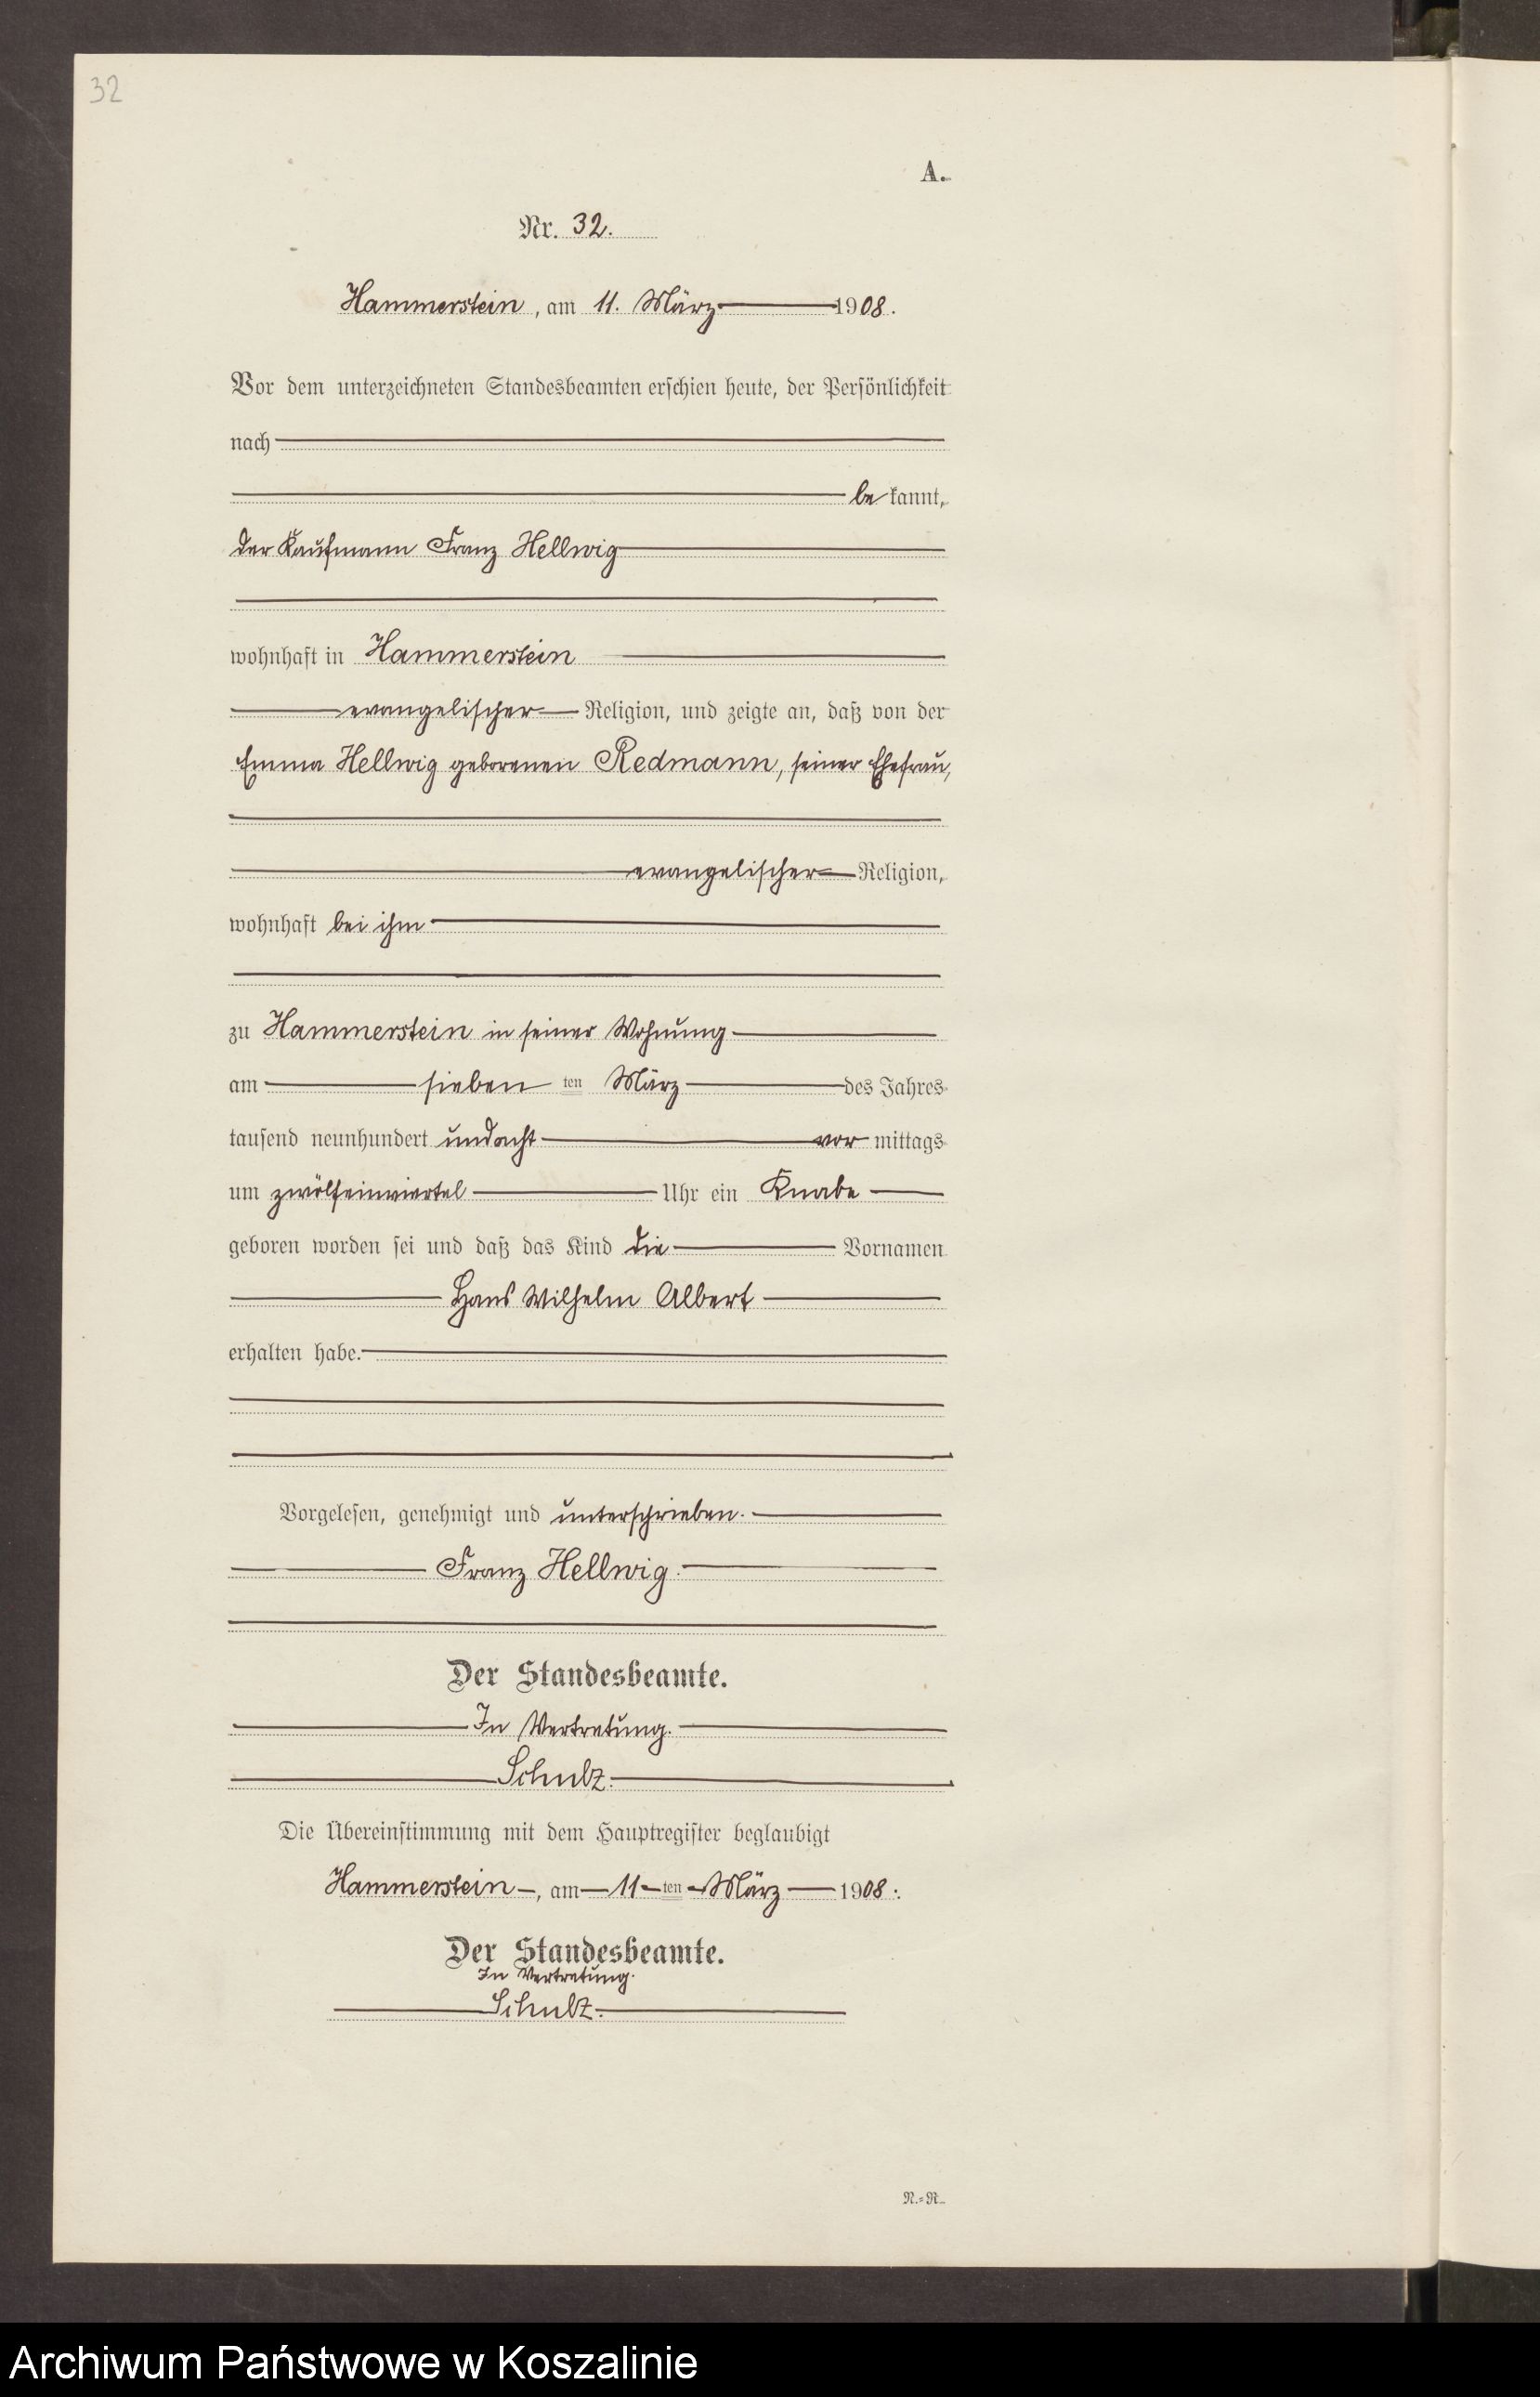 32
A.
Nr. 32.
Hammerstein, am 11. März 1908.
Vor dem unterzeichneten Standesbeamten erschien heute, der Persönlichkeit
nach
be kannt,
der Kaufmann Franz Hellwig
wohnhaft in Hammerstein
evangelischer Religion, und zeigte an, daß von der
Emma Hellwig geborenen Redmann, seiner Ehefrau,
evangelischer Religion,
wohnhaft bei ihm
zu Hammerstein in seiner Wohnung
am sieben ten März des Jahres
tausend neunhundert undacht vor mittags
um zwölfeinviertel Uhr ein Knabe
geboren worden sei und daß das Kind die Vornamen
Hans Wilhelm Albert
erhalten habe.
Vorgelesen, genehmigt und unterschrieben.
Franz Hellwig.
Der Standesbeamte.
In Vertretung.
Schulz.
Die Übereinstimmung mit dem Hauptregister beglaubigt
Hammerstein, am 11 ten März 1908.
Der Standesbeamte.
In Vertretung.
Schulz.
N.=R.
Archiwum Państwowe w Koszalinie